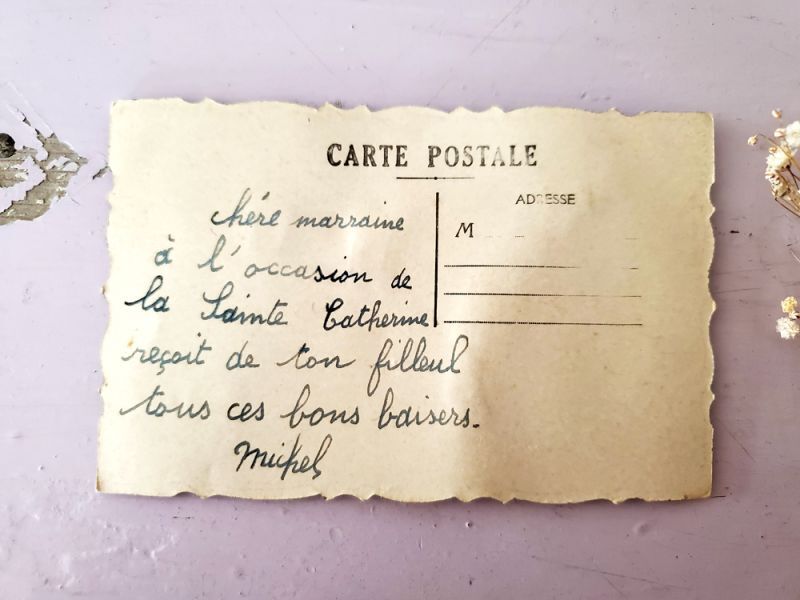 CARTE POSTALE
ADRESSE
M
chére marraine
à l'occasion de
la Sainte Catherine
reçoit de ton filleul
tous ces bons baisers.
Michel